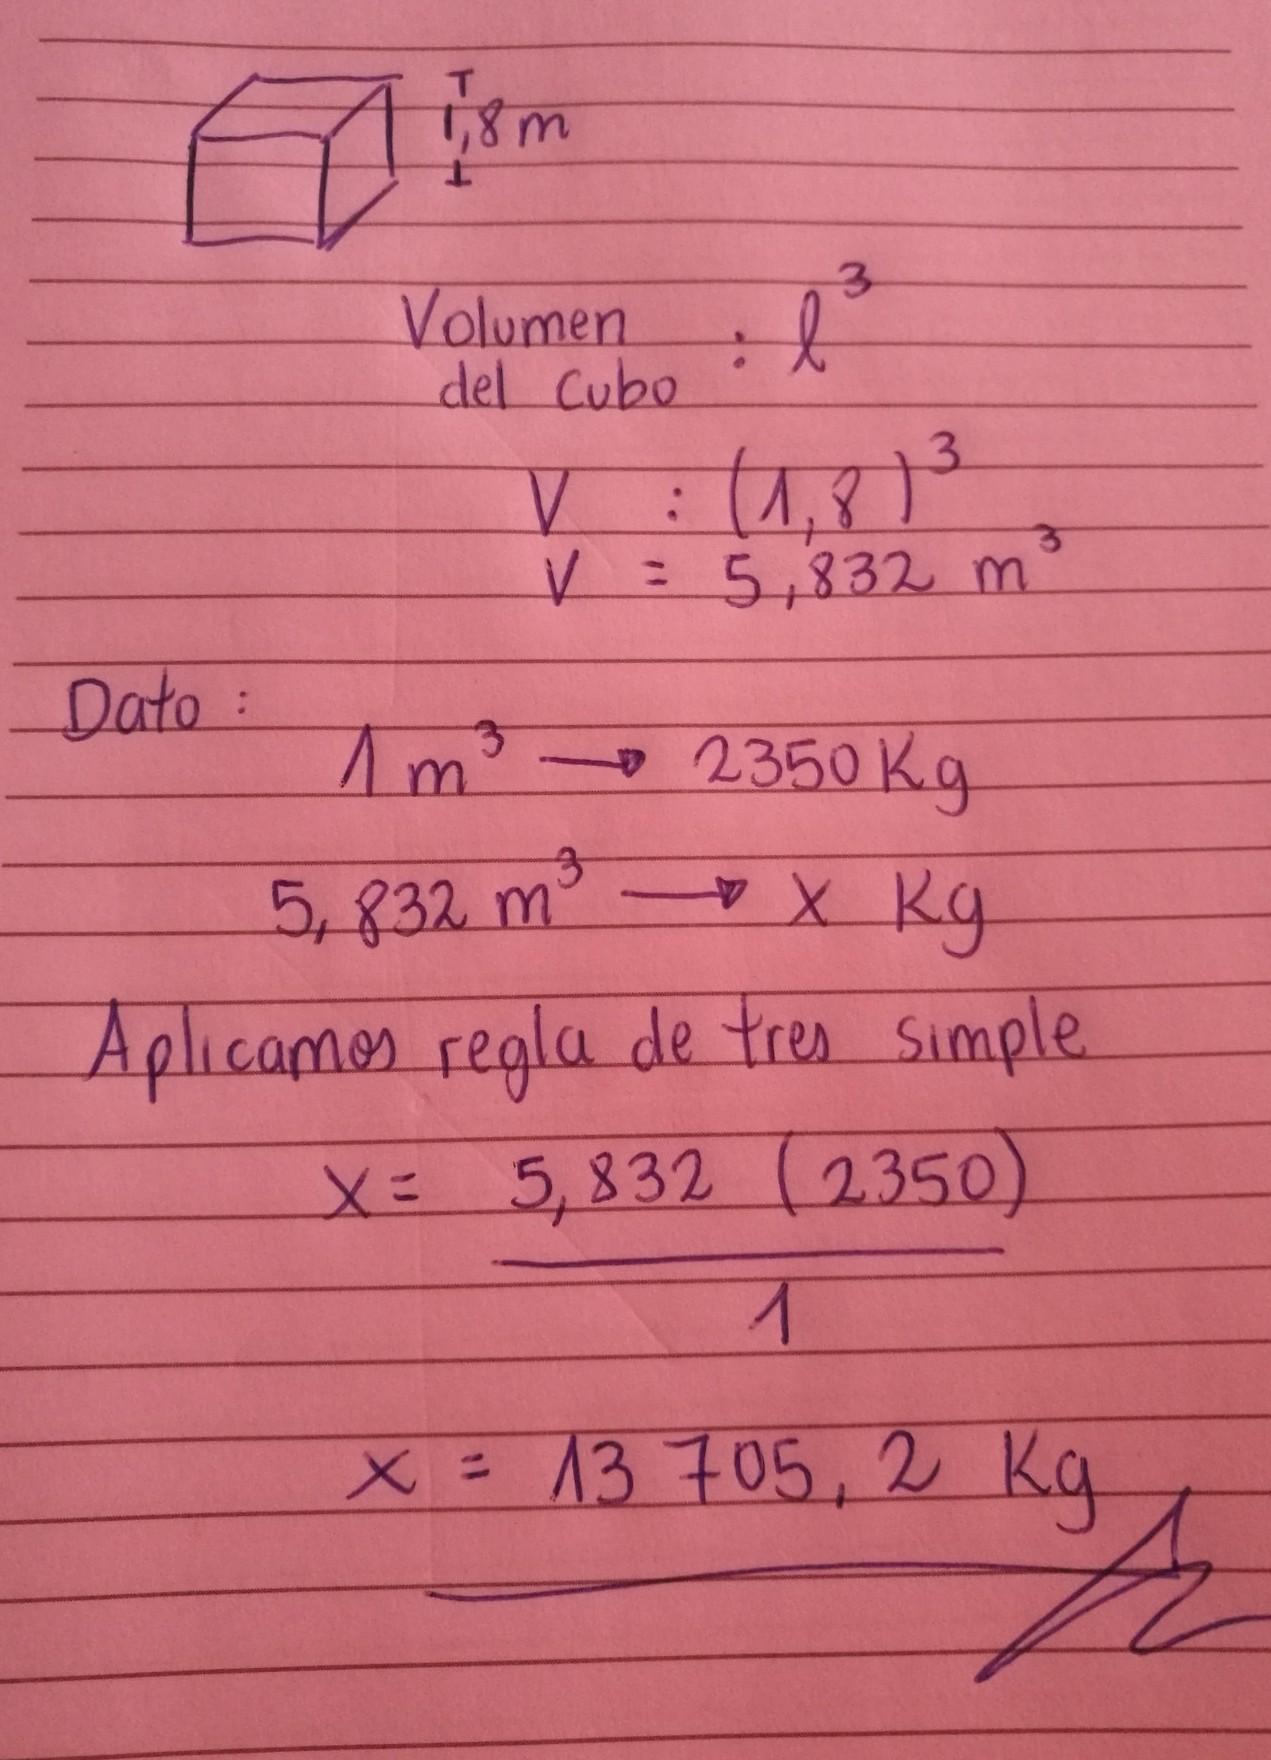 1,8 m
Volumen
del cubo : l³
V : (1,8)³
V = 5,832 m³
Dato :
1 m³ → 2350 Kg
5,832 m³ → x Kg
Aplicamos regla de tres simple
x = 5,832 (2350)
1
x = 13 705,2 Kg